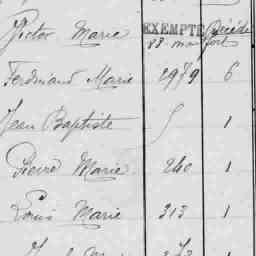 Victor Marie EXEMPTÉ Décédé
Ferdinand Marie 2979 6
Jean Baptiste 5 1
Pierre Marie 240 1
Louis Marie 313 1